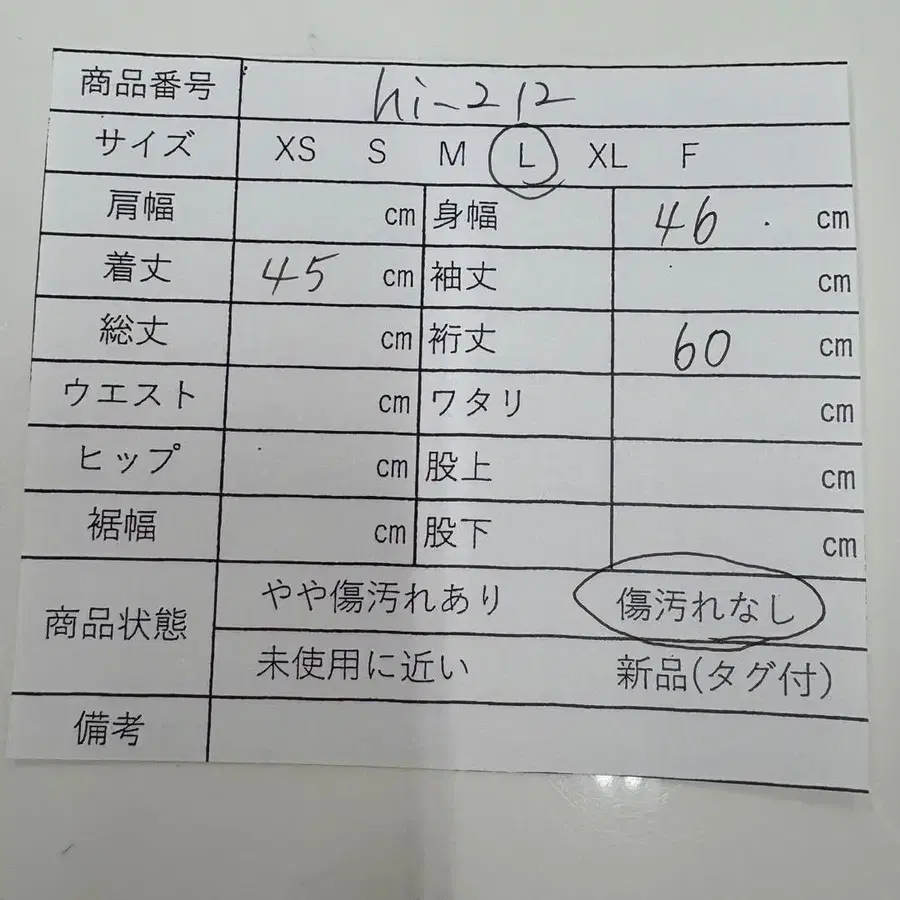 商品番号 hi-212
サイズ XS S M L XL F
肩幅 cm 身幅 46 cm
着丈 45 cm 袖丈 cm
総丈 cm 裄丈 60 cm
ウエスト cm ワタリ cm
ヒップ cm 股上 cm
裾幅 cm 股下 cm
商品状態 やや傷汚れあり 傷汚れなし
未使用に近い 新品(タグ付)
備考